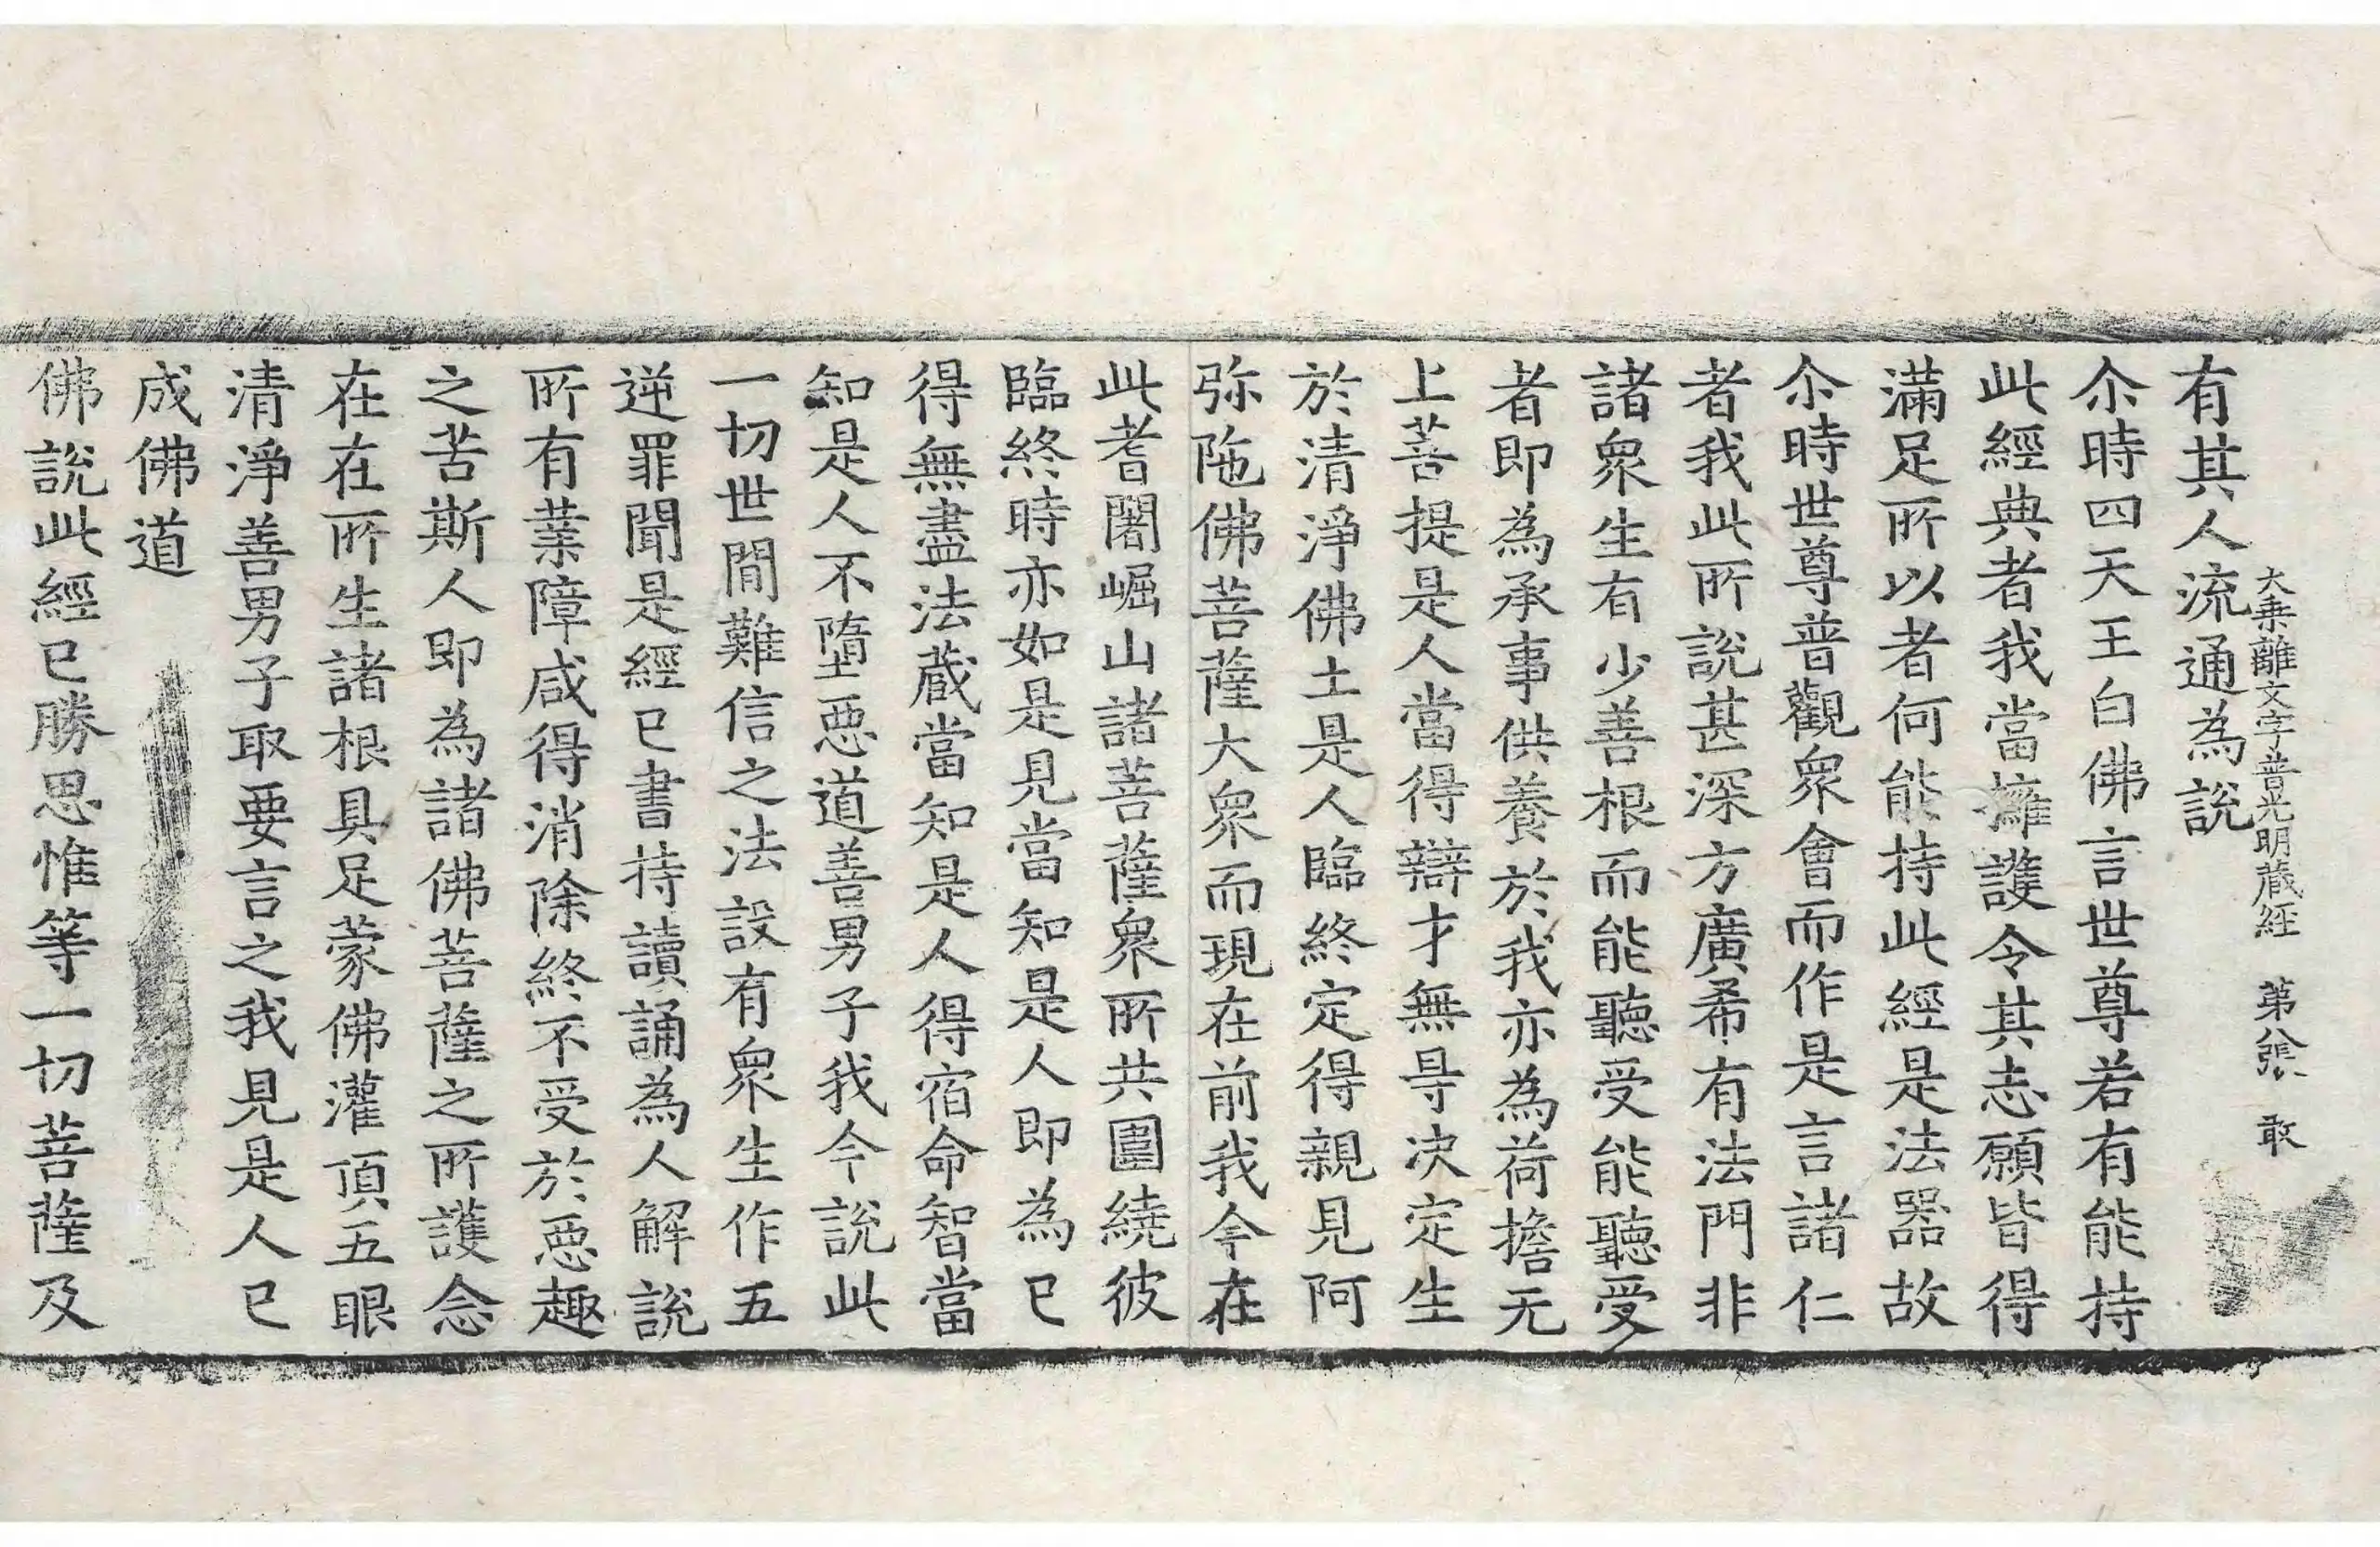 大乗離文字普光明蔵経 第八張 敢
有其人流通為說
尒時四天王白佛言世尊若有能持
此經典者我當擁護令其志願皆得
滿足所以者何能持此經是法器故
尒時世尊普觀衆會而作是言諸仁
者我此所說甚深方廣希有法門非
諸衆生有少善根而能聽受能聽受
者即為承事供養於我亦為荷擔无
上菩提是人當得辯才無㝵决定生
於清淨佛土是人臨終定得親見阿
弥陁佛菩薩大衆而現在前我今在
此耆闍崛山諸菩薩衆所共圍繞彼
臨終時亦如是見當知是人即為已
得無盡法蔵當知是人得宿命智當
知是人不墮惡道善男子我今說此
一切世間難信之法設有衆生作五
逆罪聞是經已書持讀誦為人解說
所有業障咸得消除終不受於惡趣
之苦斯人即為諸佛菩薩之所護念
在在所生諸根具足蒙佛灌頂五眼
清淨善男子取要言之我見是人已
成佛道
佛說此經已勝思惟等一切菩薩及